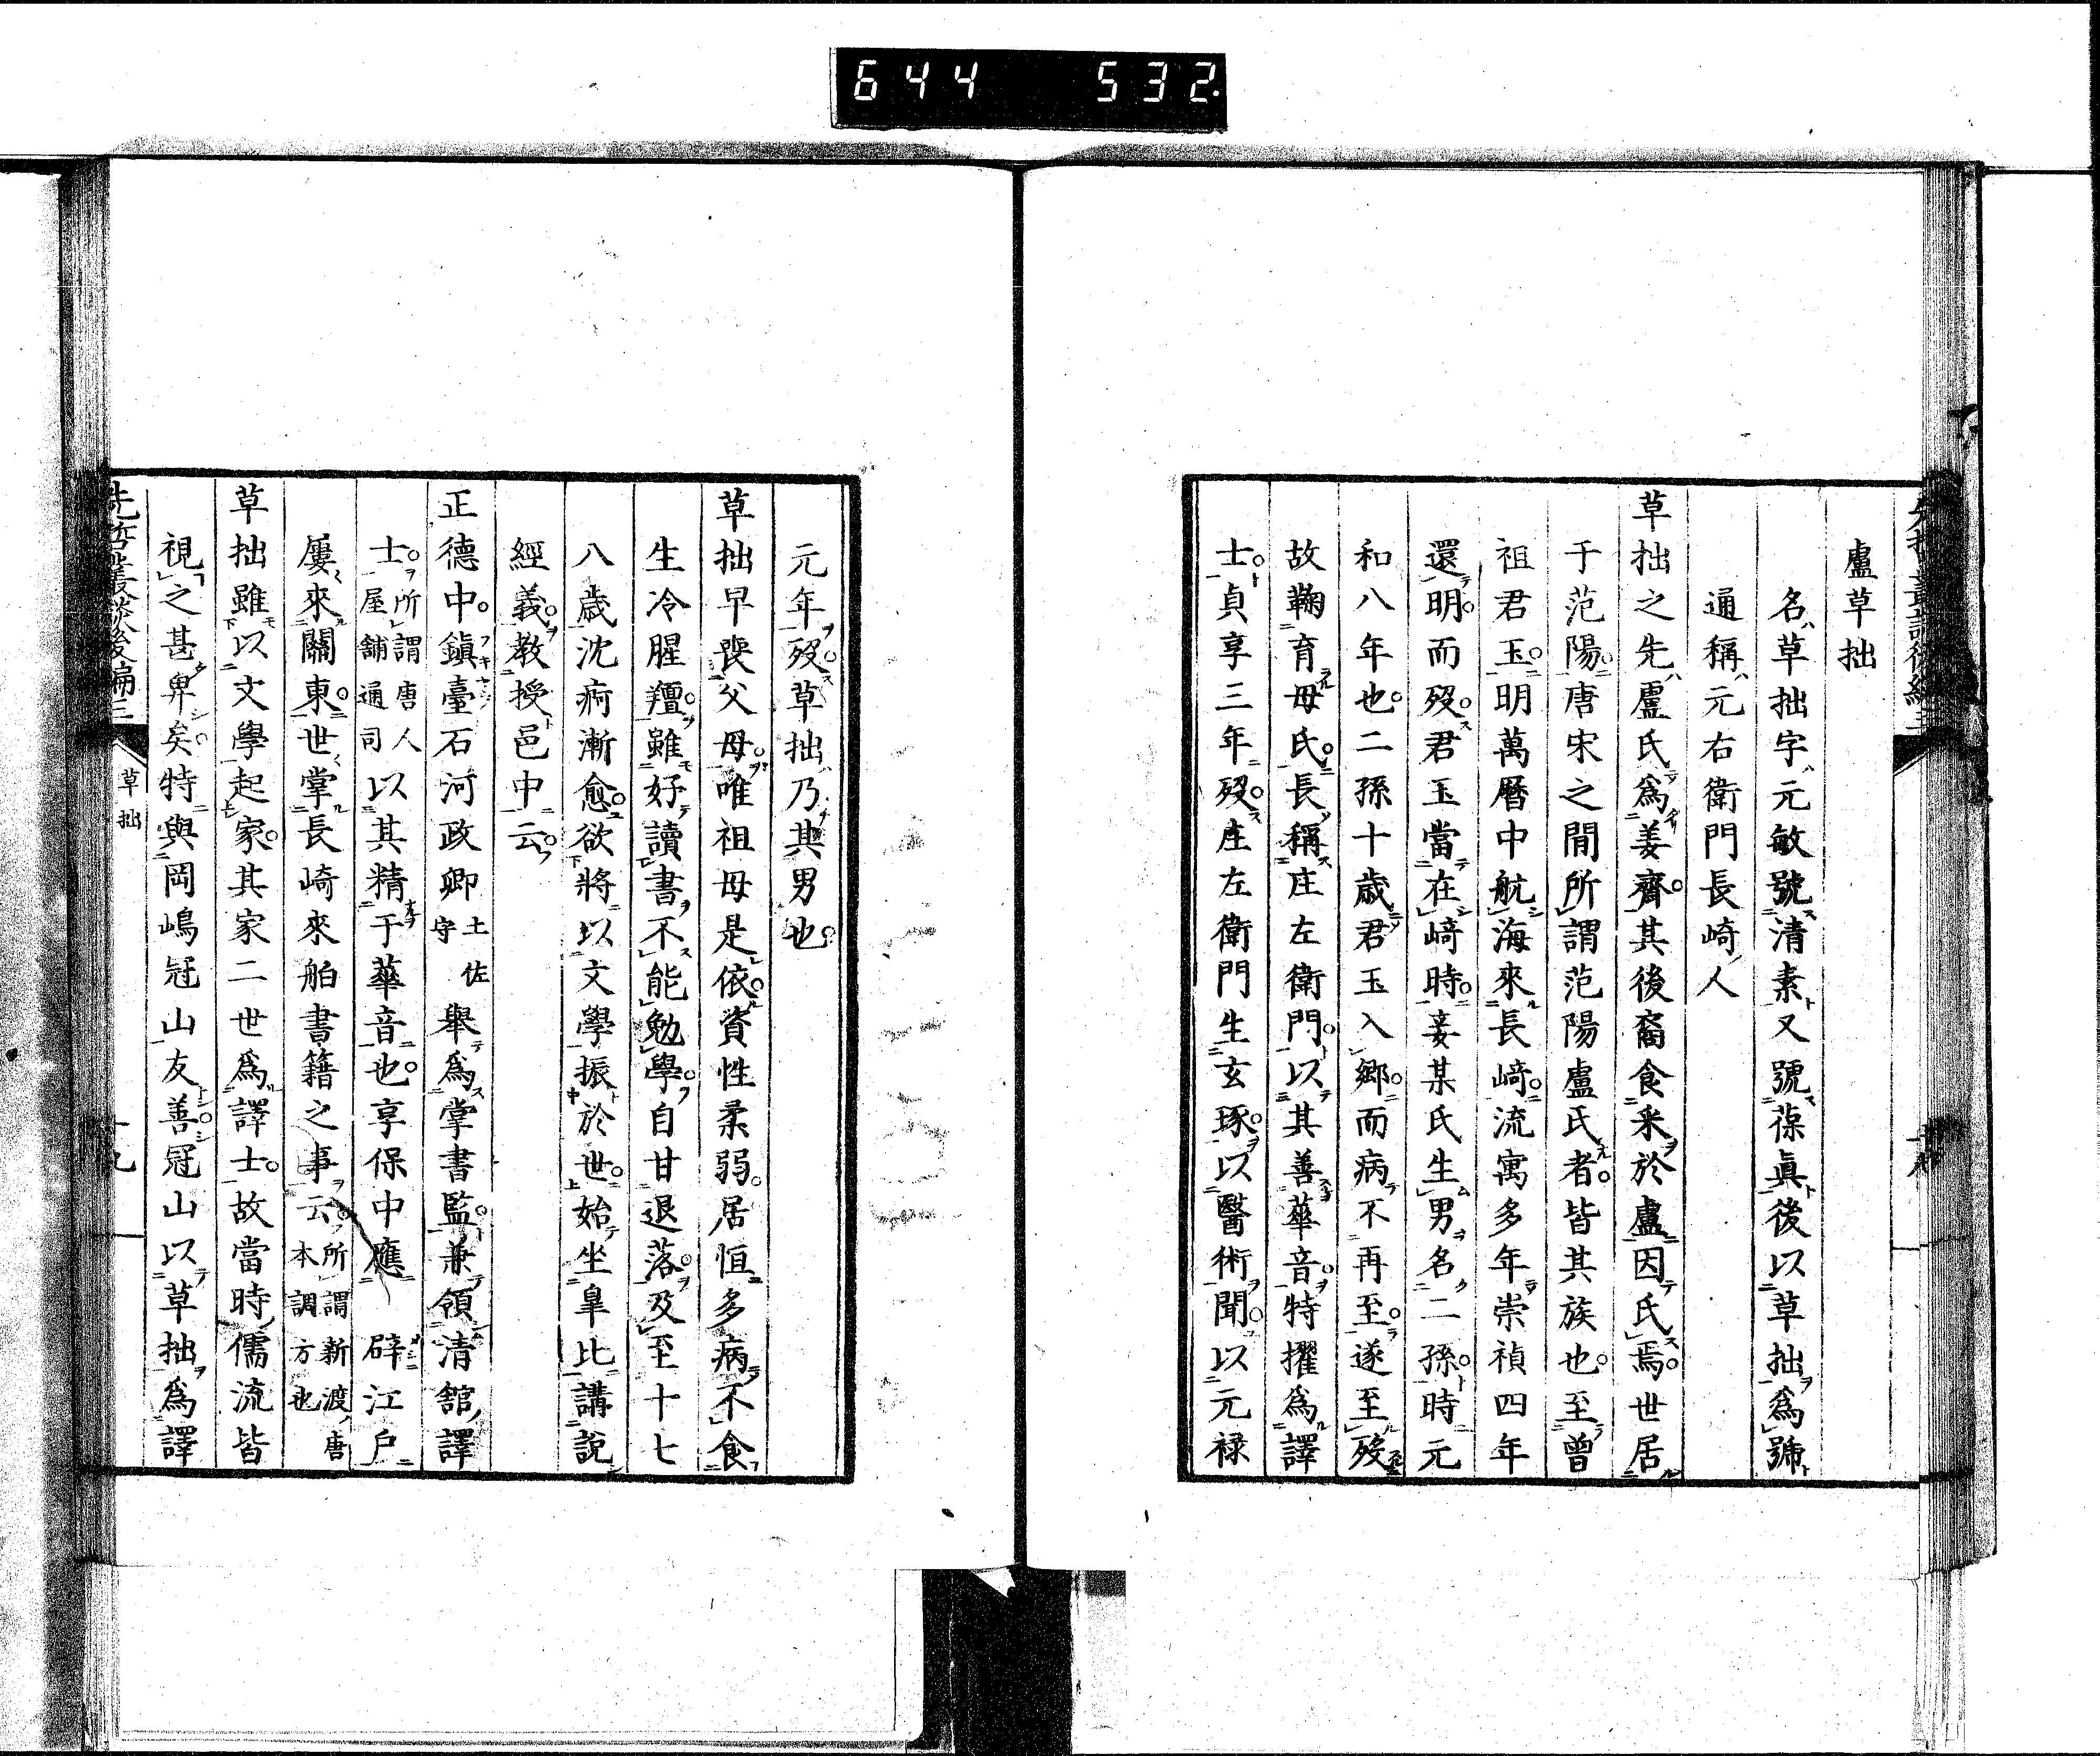 644 532
盧草拙
名草拙字元敏號清素又號葆眞後以草拙爲號
通稱元右衛門長崎人
草拙之先盧氏爲姜齊其後裔食采於盧因氏焉世居
于范陽唐宋之間所謂范陽盧氏者皆其族也至曾
祖君玉明萬曆中航海來長崎流寓多年崇禎四年
還明而歿君玉當在崎時妾某氏生男名二孫時元
和八年也二孫十歲君玉入鄉而病不再至遂至歿
故鞠育母氏長稱庄左衛門以其善華音特擢爲譯
士貞享三年歿庄左衛門生玄琢以醫術聞以元祿
元年歿草拙乃其男也
草拙早喪父母唯祖母是依資性柔弱居恒多病不食
生冷腥羶雖好讀書不能勉學自甘退落及至十七
八歲沈痾漸愈欲將以文學振於世始坐皐比講說
經義教授邑中云
正德中鎭臺石河政卿土佐守舉爲掌書監兼領清舘譯
士所謂唐人屋舖通司以其精于華音也享保中應 辟江戶
屢來關東世掌長崎來舶書籍之事云所謂新渡唐本調方也
草拙雖以文學起家其家二世爲譯士故當時儒流皆
視之甚卑矣特與岡嶋冠山友善冠山以草拙爲譯
先哲叢談後編三
草拙
十九